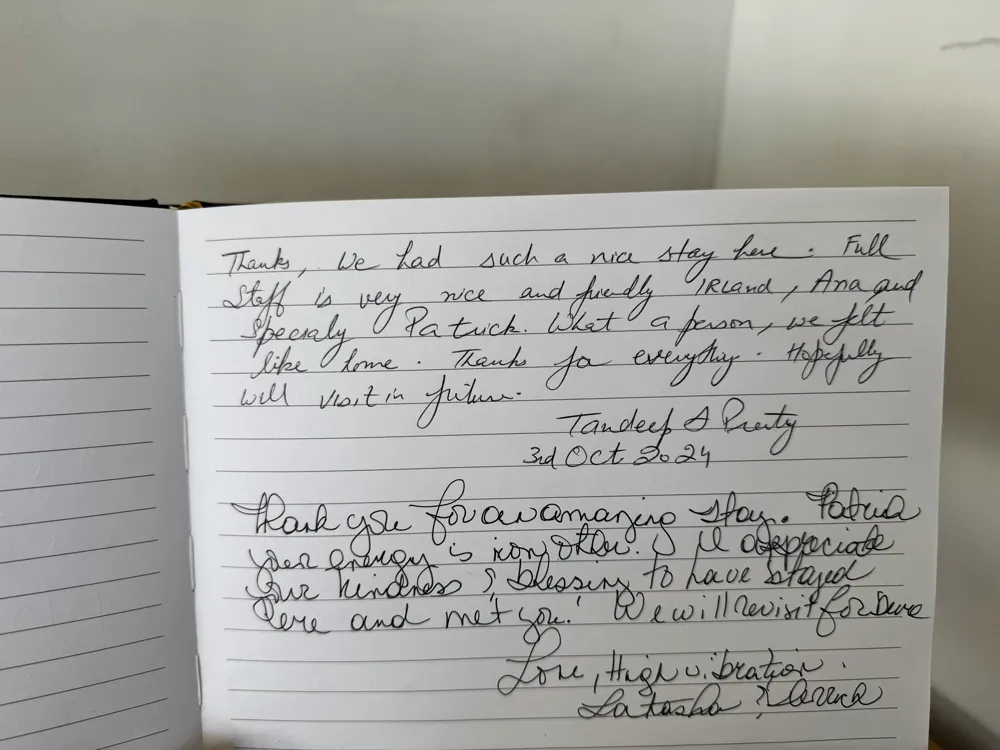 Thanks, We had such a nice stay here. Full
Staff is very nice and friendly IRLand, Ana and
Specialy Patrick. What a person, we felt
like home. Thanks for everything. Hopefully
will visit in future.
Tandeep & Preity
3rd Oct 2024
Thank you for an amazing stay. Patricia
your energy is non other. I appreciate
your kindness & blessing to have stayed
here and met you! We will revisit for sure
Love, High vibration.
Latasha &